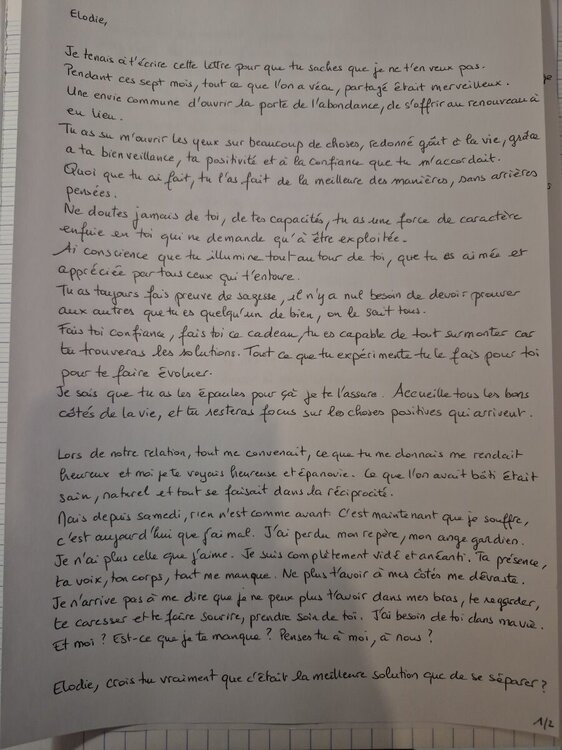 Elodie,
Je tenais à t'écrire cette lettre pour que tu saches que je ne t'en veux pas.
Pendant ces sept mois, tout ce que l'on a vécu, partagé était merveilleux.
Une envie commune d'ouvrir la porte de l'abondance, de s'offrir au renouveau à
eu lieu.
Tu as su m'ouvrir les yeux sur beaucoup de choses, redonné goût à la vie, grâce
a ta bienveillance, ta positivité et à la confiance que tu m'accordait.
Quoi que tu ai fait, tu l'as fait de la meilleure des manières, sans arrières
pensées.
Ne doutes jamais de toi, de tes capacités, tu as une force de caractère
enfuie en toi qui ne demande qu'à être exploitée.
Ai conscience que tu illumine tout autour de toi, que tu es aimée et
appréciée par tous ceux qui t'entoure.
Tu as toujours fais preuve de sagesse, il n'y a nul besoin de devoir prouver
aux autres que tu es quelqu'un de bien, on le sait tous.
Fais toi confiance, fais toi ce cadeau, tu es capable de tout surmonter car
tu trouveras les solutions. Tout ce que tu expérimente tu le fais pour toi
pour te faire évoluer.
Je sais que tu as les épaules pour çà je te l'assure. Accueille tous les bons
côtés de la vie, et tu resteras focus sur les choses positives qui arrivent.
Lors de notre relation, tout me convenait, ce que tu me donnais me rendait
heureux et moi je te voyais heureuse et épanovie. Ce que l'on avait bâti était
sain, naturel et tout se faisait dans la réciprocité.
Mais depuis samedi, rien n'est comme avant. C'est maintenant que je souffre,
c'est aujourd'hui que j'ai mal. J'ai perdu mon repère, mon ange gardien.
Je n'ai plus celle que j'aime. Je suis complètement vidé et anéanti. Ta présence,
ta voix, ton corps, tout me manque. Ne plus t'avoir à mes côtés me dévaste.
Je n'arrive pas à me dire que je ne peux plus t'avoir dans mes bras, te regarder,
te caresser et te faire sourire, prendre soin de toi. J'ai besoin de toi dans ma vie.
Et moi ? Est-ce que je te manque ? Penses tu à moi, à nous ?
Elodie, crois tu vraiment que c'était la meilleure solution que de se séparer ?
1/2